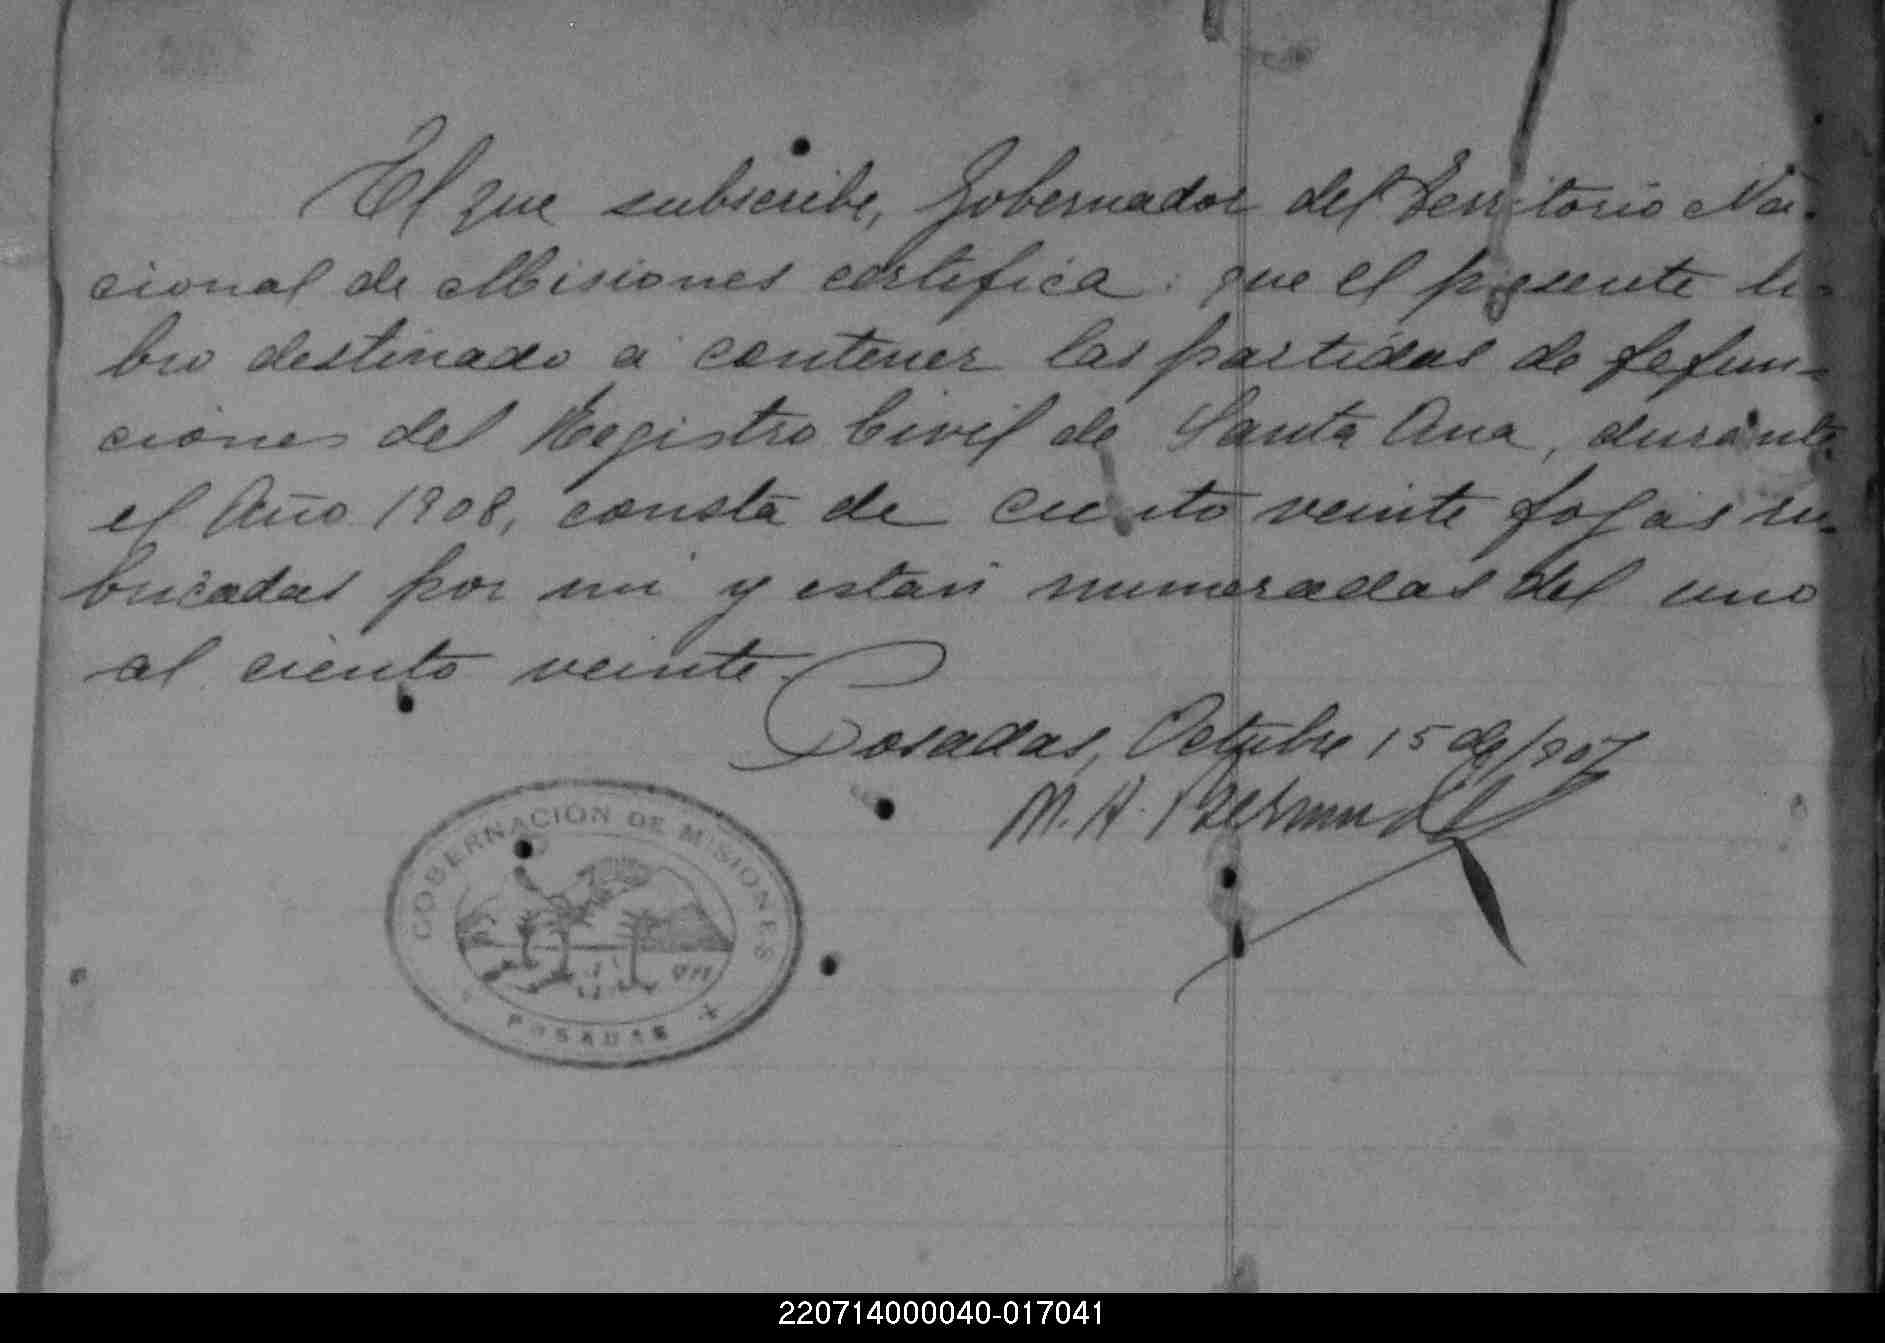 El que subscribe, Gobernador del Territorio Na-
cional de Misiones certifica: que el presente li-
bro destinado a contener las partidas de defun-
ciones del Registro Civil de Santa Ana, durante
el Año 1908, consta de ciento veinte fojas ru-
bricadas por mi y estan numeradas del uno
al ciento veinte.
Posadas, Octubre 15 de 1907
M. A. Bermudez
GOBERNACION DE MISIONES
POSADAS
220714000040-017041